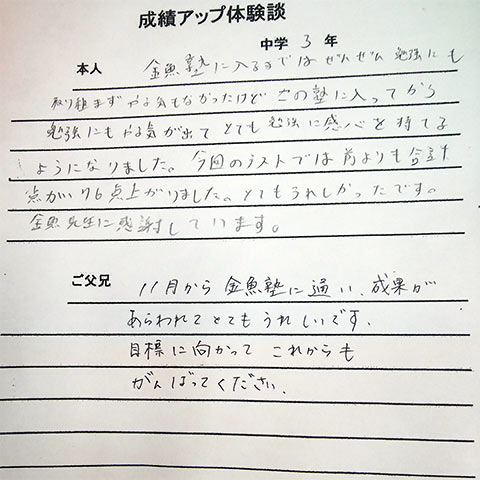 成績アップ体験談
中学 3 年
本人 金魚塾に入るまではぜんぜん勉強にも
取り組まずやる気もなかったけどこの塾に入ってから
勉強にもやる気が出てとても勉強に感心を持てる
ようになりました。今回のテストでは前よりも合計
点が176点上がりました。とてもうれしかったです。
金魚先生に感謝しています。
ご父兄 11月から金魚塾に通い、成果が
あらわれてとてもうれしいです。
目標に向かって これからも
がんばってください。